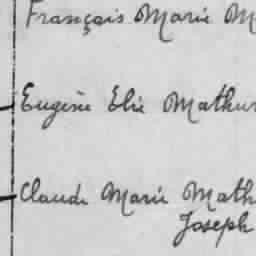 François Marie M
Eugène Elie Mathur
Claude Marie Math
Joseph